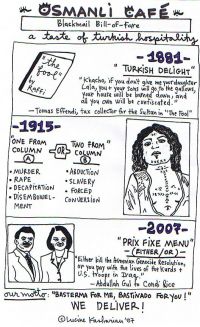 OSMANLI CAFÉ
Blackmail Bill-of-Fare
a taste of turkish hospitality
the
"Fool"
by
RAFFI
-1881-
"TURKISH DELIGHT"
"Khacho, if you don't give me your daughter
Lala, you & your sons will go to the gallows,
your house will be burned down, and
all you own will be confiscated."
—Tomas Effendi, tax collector for the Sultan in "The Fool"
-1915-
"ONE FROM
COLUMN
A
-OR-
TWO FROM"
COLUMN
B
• MURDER
• RAPE
• DECAPITATION
• DISEMBOWEL-
MENT
• ABDUCTION
• SLAVERY
• FORCED
CONVERSION
-2007-
"PRIX FIXE MENU"
(EITHER/OR)
"Either kill the Armenian Genocide Resolution,
or you pay with the lives of the Kurds &
U.S. troops in Iraq."
—Abdullah Gul to Condi Rice
our motto: "BASTERMA FOR ME, BASTINADO FOR YOU!"
WE DELIVER!
© Lucine Kasbarian '07